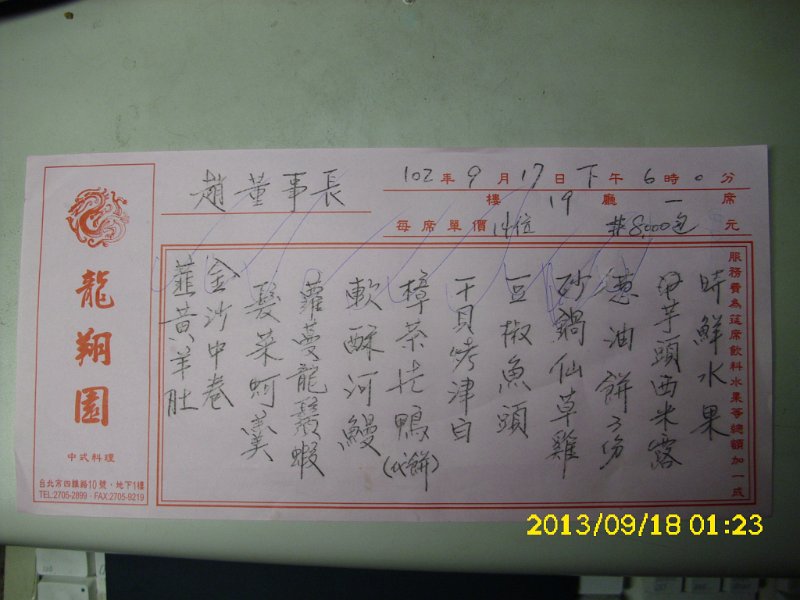 趙董事長
102年9月17日下午6時0分
樓19廳一席
每席單價14位 #8,000包元
龍翔園
中式料理
台北市四維路10號、地下1樓
TEL:2705-2899・FAX:2705-9219
韮黃羊肚
金沙中卷
髮菜蚵羹
蘿蔓龍鬚蝦
軟酥河鰻
樟茶鴨(代餅)
干貝烤津白
豆椒魚頭
砂鍋仙草雞
蔥油餅3份
芋頭西米露
時鮮水果
服務費為筵席飲料水果等總額加一成
2013/09/18 01:23